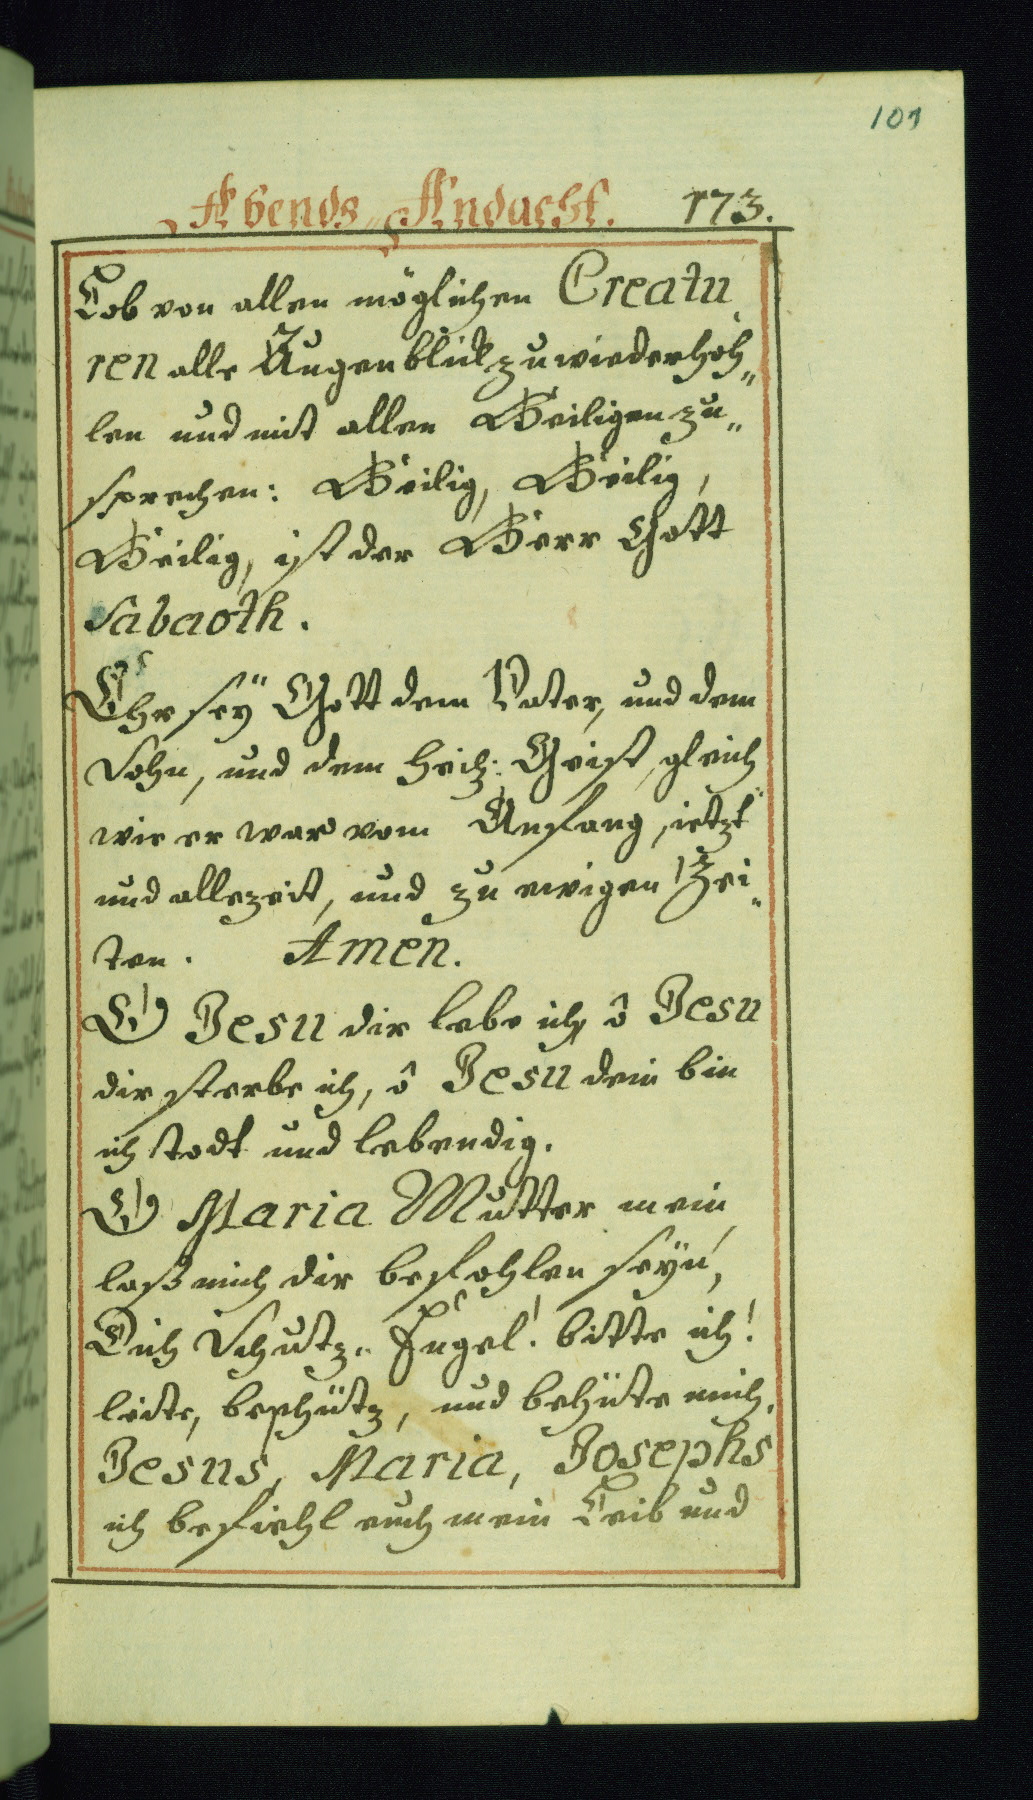 101
Abends-Andacht. 173.
Lob von allen möglichen Creatu
ren alle Augenblick zu wiederhoh„
len und mit allen Heiligen zu„
sprechen: Heilig, Heilig,
Heilig, ist der Herr Gott
Sabaoth.
Ehr seÿ Gott dem Vater, und dem
Sohn, und dem heil: Geist, gleich
wie er war vom Anfang, ietzt
und allezeit, und zu ewigen Zei„
ten. Amen.
O Jesu dir lebe ich, ô Jesu
dir sterbe ich, ô Jesu dein bin
ich todt und lebendig.
O Maria Mutter mein
laß mich dir befohlen seÿn,
Dich Schutz„ Engel! bitte ich!
leite, beschütz, und behüte mich.
Jesus, Maria, Josephs
ich befiehl euch mein Leib und